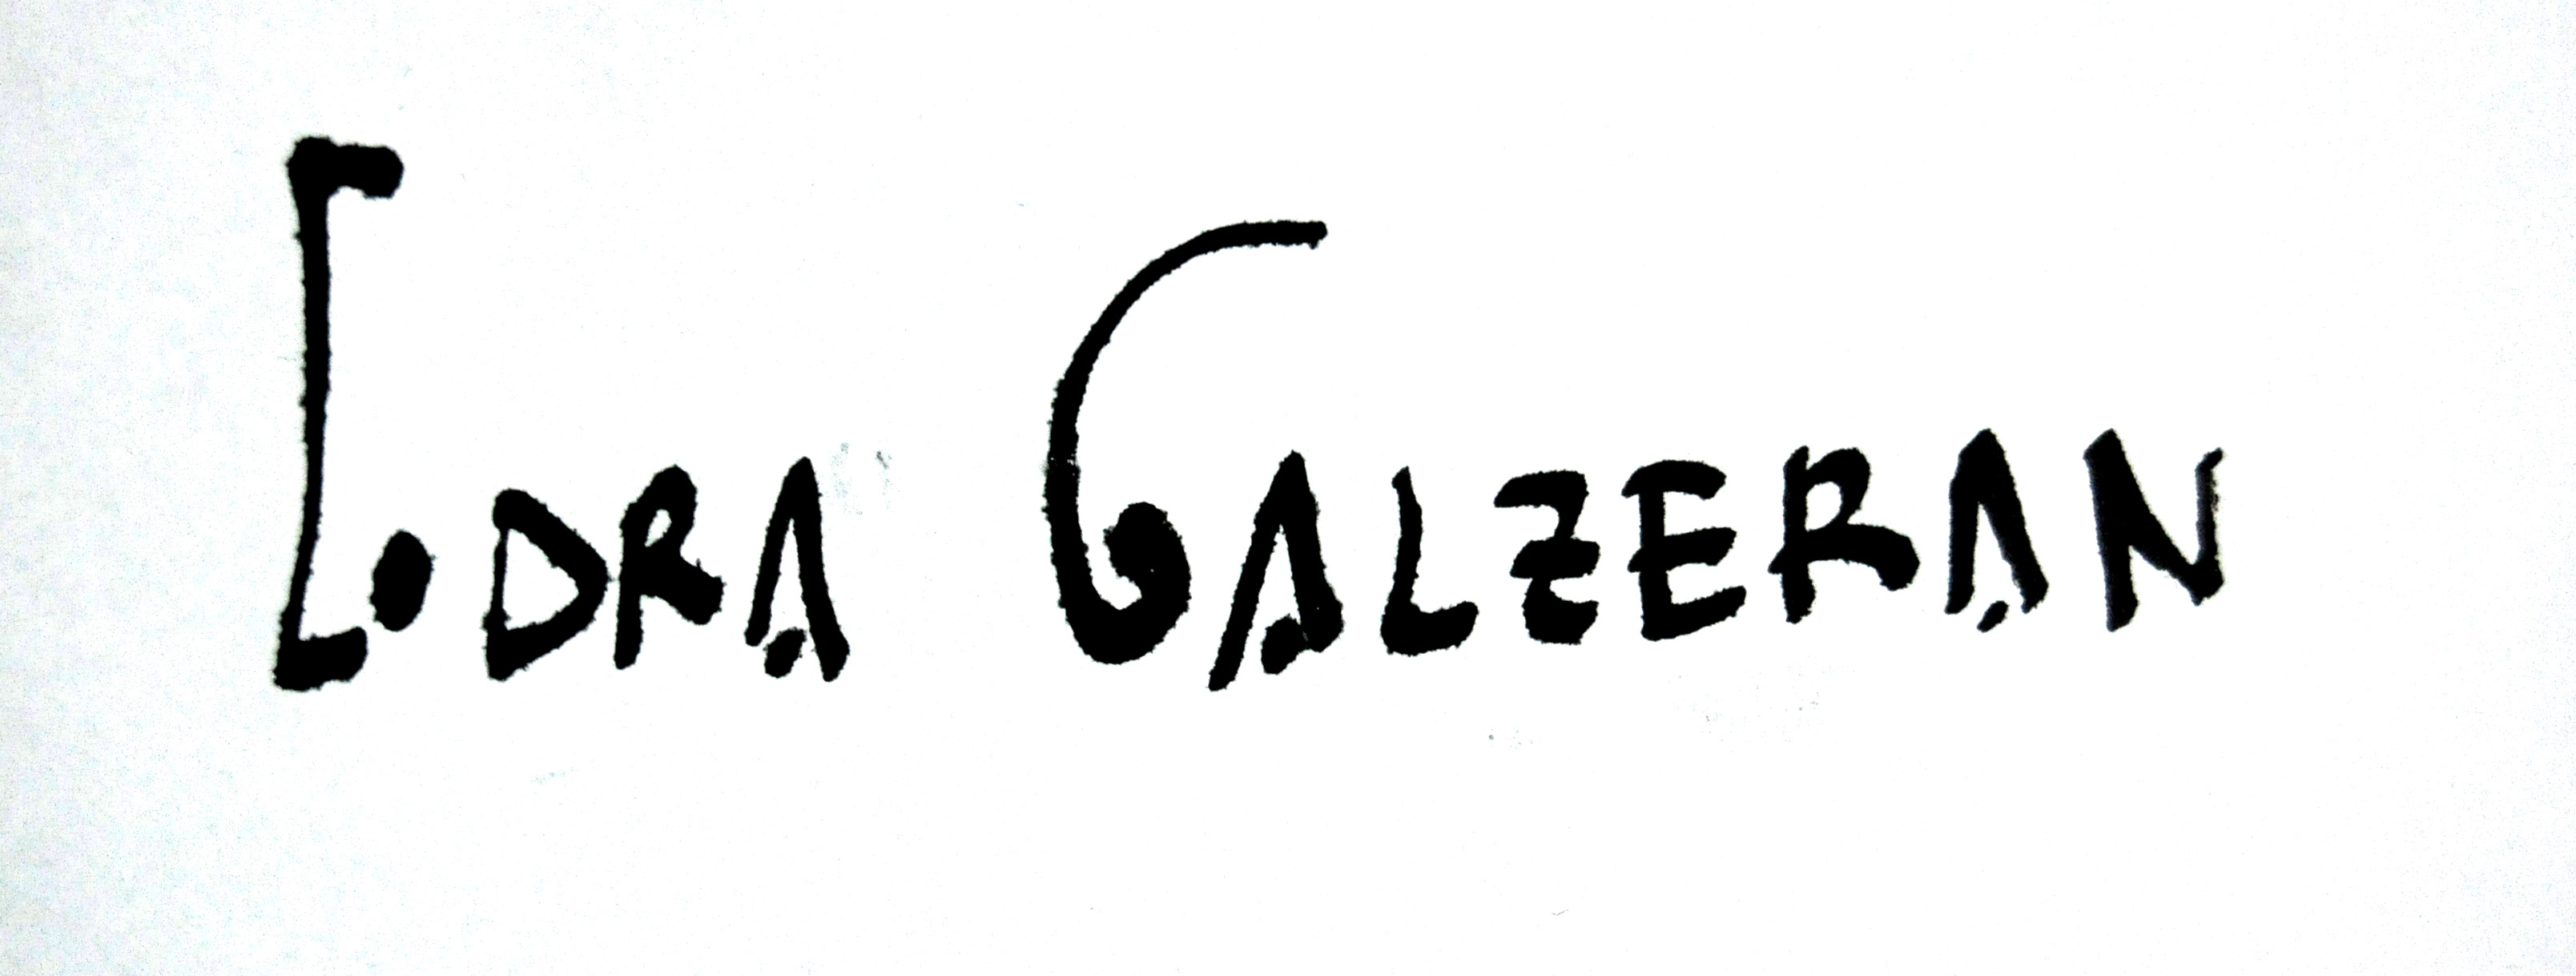 Lodra Galzeran